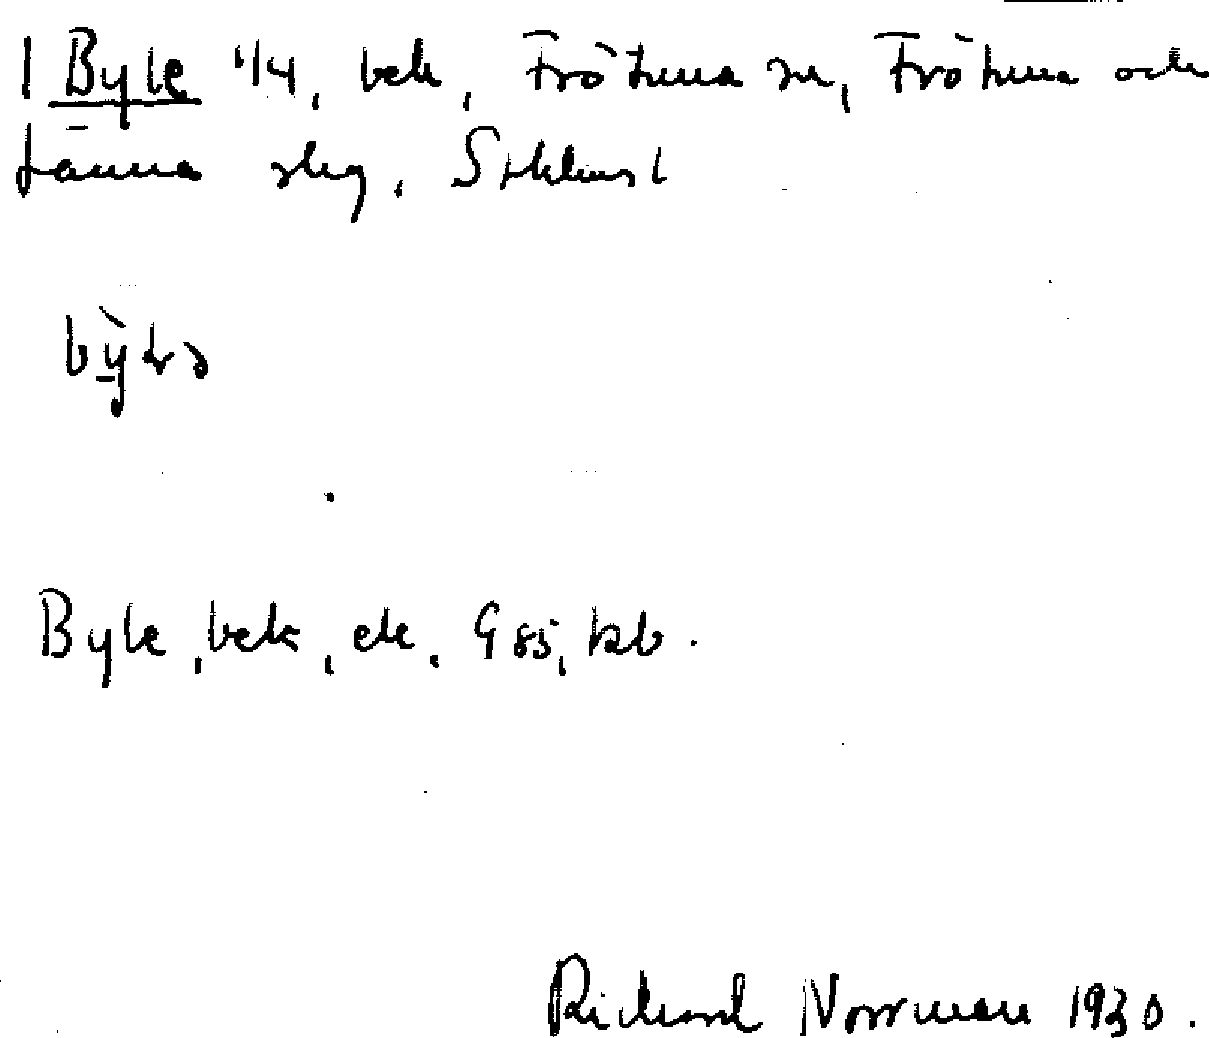 1 Byle 1/4, bek, Frötuna sn, Frötuna och
Länna skg, Sthlms l
Byle, bek, ek. G 85, kb.
Rickard Norrman 1930.